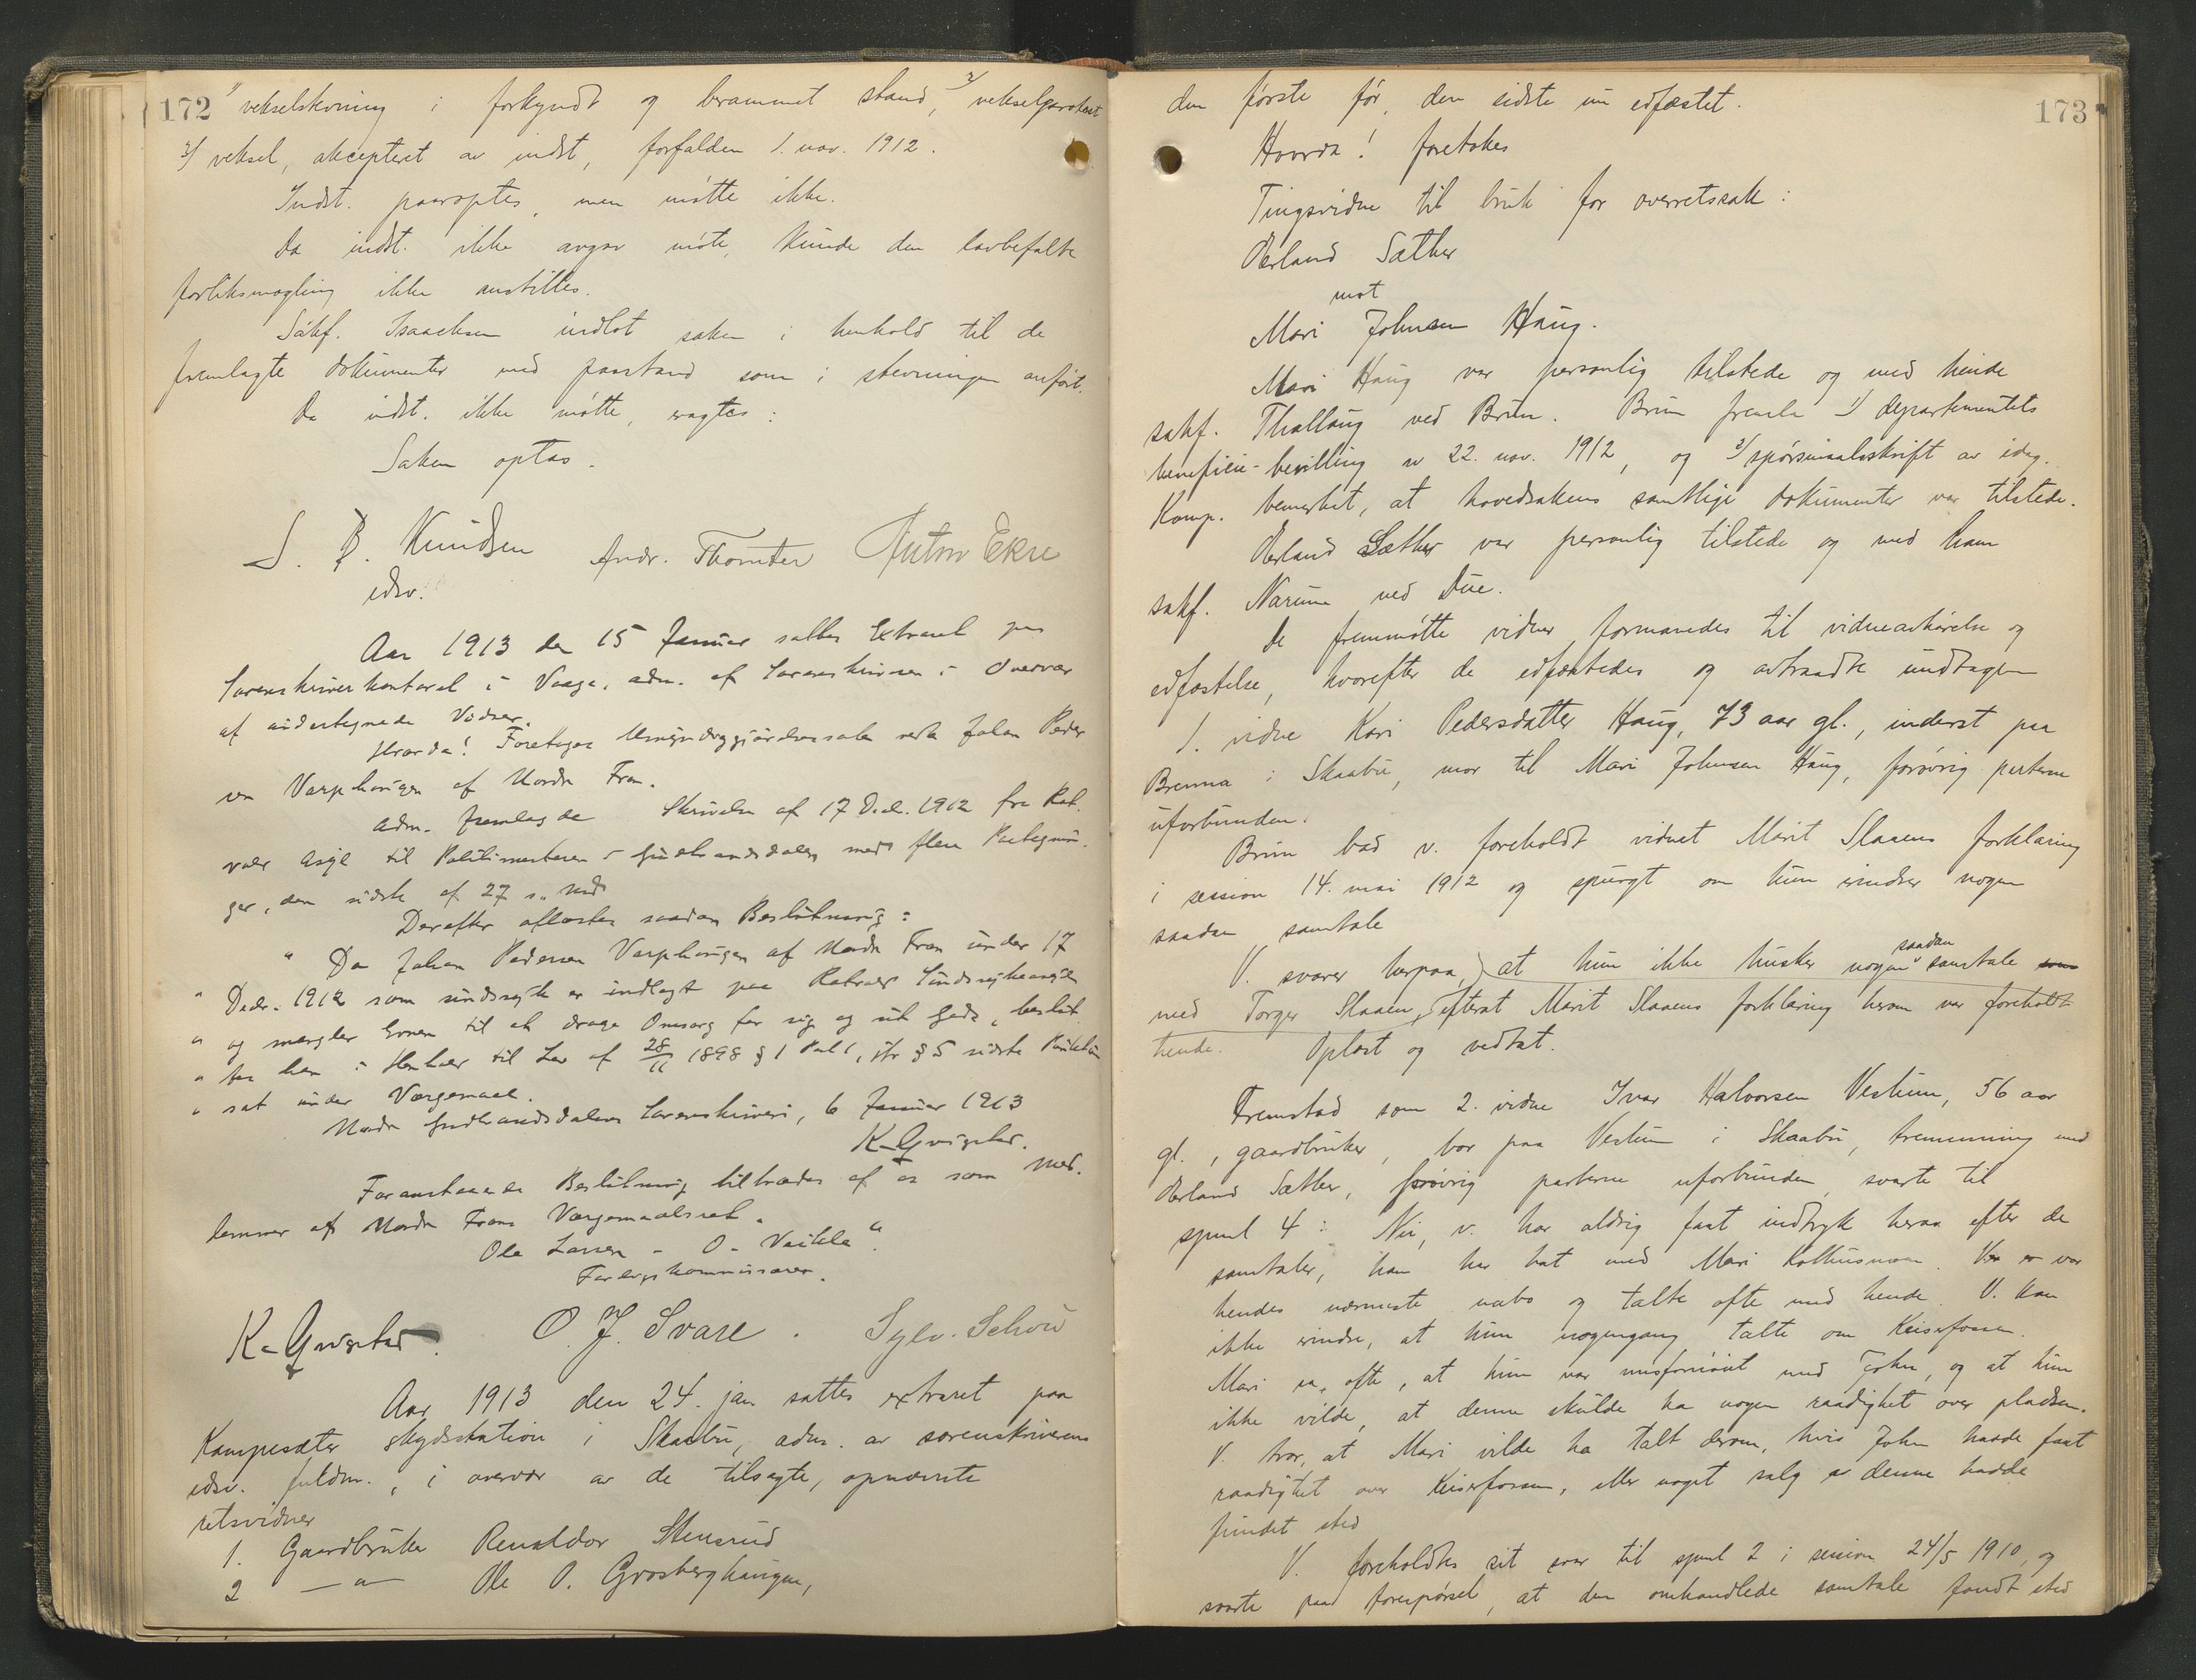 172 1/ vekselstevning i forkyndt og berammet stand, 2/ vekselprotest
3/ veksel, akceptert av indst, forfalden 1. nov. 1912.
Indst. paaroptes, men møtte ikke.
Da indst. ikke avgav møte, kunde den lovbefalte
forliksmægling ikke anstilles.
Sakf. Isaachsen indlot saken i henhold til de
fremlagte dokumenter med paastand som i stevningen anført.
Da indst. ikke møtte, vagtes:
Saken optas.
S. B. Knudsen Andr. Thomter Anton Ekre
edsv.
Aar 1913 den 15 Januar sattes Extraret paa
Sorenskriverkontoret i Vaage, adm. af Sorenskriveren i Overvær
af undertegnede Vidner.
Hvorda! Foretages Umyndiggjørelsessak vedk Johan Peder
sen Varphaugen af Nordre Fron.
Adm. fremlagde Skrivelse af 17 Decbr. 1912 fra Rot
volds Asyl til Politimesteren i Gudbrandsdalen med flere Paategnin
ger, den sidste af 27 s. Md
Derefter aflæstes saadan Beslutning:
" Da Johan Pedersen Varphaugen af Nordre Fron under 17
" Decbr. 1912 som sindssyk er indlagt paa Rotvold Sindssykeasyl
" og mangler Evnen til at drage Omsorg for sig og sit Gods, beslut
" tes han i Henhold til Lov af 28/11 1898 § 1 Post 1, jfr § 5 sidste Punktum
" sat under Værgemaal.
Nordre Gudbrandsdalens Sorenskriveri, 6 Januar 1913
K. Qvigstad.
Foranstaaende Beslutning tiltrædes af os som Med.
lemmer af Nordre Frons Værgemaalsret.
Ole Larsen - O. Veikle "
Forligskommissærer.
K. Qvigstad. O. J. Svare. Sylv. Schou
Aar 1913 den 24. jan. sattes extraret paa
Kampesæter skydsstation i Skaabu, adm. av sorenskriverens
edsv. fuldm., i overvær av de tilsagte, opnævnte
retsvidner
1. Gaardbruker Renaldor Stensrud
2 — " — Ole O. Grosberghaugen,
173
den første før, den sidste nu edfæstet.
Hvorda! foretokes
Tingsvidne til bruk for overretssak:
Erland Sæther
mot
Mari Johnsen Haug.
Mari Haug var personlig tilstede og med hende
sakf. Thallaug ved Brun. Brun freml. 1/ departementets
beneficie-bevilling av 22. nov. 1912, og 2/ spørsmaalsskrift av idag.
Komp. bemerket, at hovedsakens samtlige dokumenter var tilstede.
Erland Sæther var personlig tilstede og med ham
sakf. Narum ved Due.
De fremmøtte vidner formanedes til vidneavhørelse og
edfæstelse, hvorefter de edfæstedes og avtraadte undtagen
1. vidne Kari Pedersdatter Haug, 73 aar gl., inderst paa
Brenna i Skaabu, mor til Mari Johnsen Haug, forøvrig parterne
uforbunden.
Brun bad v. foreholdt vidnet Marit Slaaens forklaring
i session 14. mai 1912 og spurgt om hun erindrer nogen
saadan samtale
V. svarer herpaa, at hun ikke husker nogen saadan samtale som
med Torger Slaaen, efterat Marit Slaaens forklaring herom var foreholdt
hende. Oplæst og vedtat.
Fremstod som 2. vidne Ivar Halvorsen Vestum, 56 aar
gl., gaardbruker, bor paa Vestum i Skaabu, tremenning med
Erland Sæther, forøvrig parterne uforbunden, svarte til
spml 4: Nei, v. har aldrig faat indtryk herav efter de
samtaler, han har hat med Mari Kolhusmoen. Han var
hendes nærmeste nabo og talte ofte med hende. V. kan
ikke erindre, at hun nogengang talte om Keiserfossen.
Mari sa ofte, at hun var misfornøiet med John, og at hun
ikke vilde, at denne skulde ha nogen raadighet over pladsen.
V. tror, at Mari vilde ha talt derom, hvis John hadde faat
raadighet over Keiserfossen, eller noget salg av denne hadde
fundet sted
V. foreholdtes sit svar til spml 2 i session 24/5 1910, og
svarte paa forespørsel, at den omhandlede samtale fandt sted